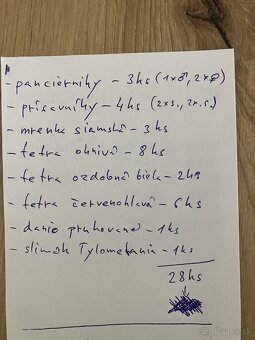 - panciérniky - 3ks (1x♂, 2x♀)
- prísavníky - 4ks (2xs., 2x.s.)
- mrenka siamská - 3ks
- tetra ohnivá - 8ks
- tetra ozdobná biela - 2ks
- tetra červenohlavá - 6ks
- danio pruhované - 1ks
- slimák Tylomelania - 1ks
28ks